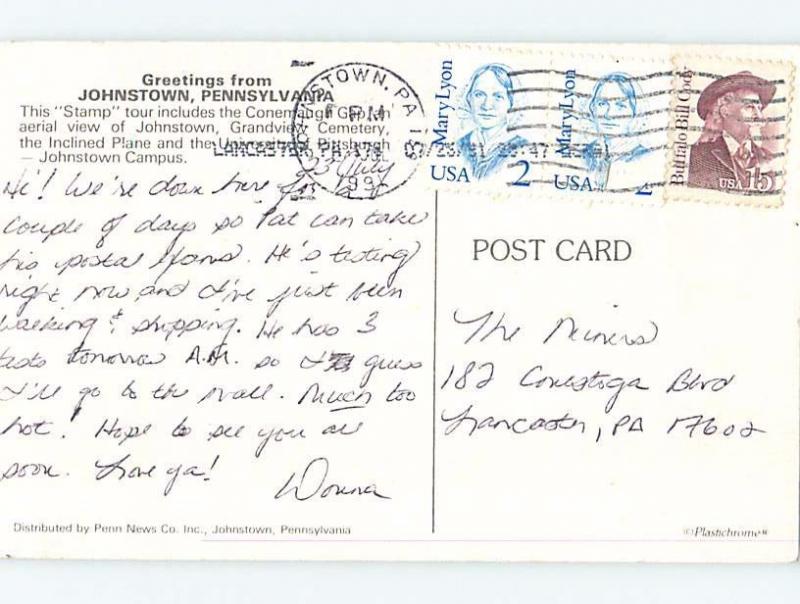 Greetings from
JOHNSTOWN, PENNSYLVANIA
This "Stamp" tour includes the Conemaugh Gap, an
aerial view of Johnstown, Grandview Cemetery,
the Inclined Plane and the University of Pittsburgh
— Johnstown Campus.
Hi! We're down here for a
couple of days so Pat can take
his postal exams. He's testing
right now and I've just been
walking & shopping. He has 3
tests tomorrow A.M. so I guess
I'll go to the mall. Much too
hot! Hope to see you all
soon. Love ya!
Donna
Distributed by Penn News Co. Inc., Johnstown, Pennsylvania
JOHNSTOWN, PA
PM
23 July
1991
LANCASTER, PA 07/23/91 20:47
Mary Lyon
USA 2
Mary Lyon
USA 2
Buffalo Bill Cody
USA 15
POST CARD
The Miners
182 Conestoga Blvd
Lancaster, PA 17602
©Plastichrome®